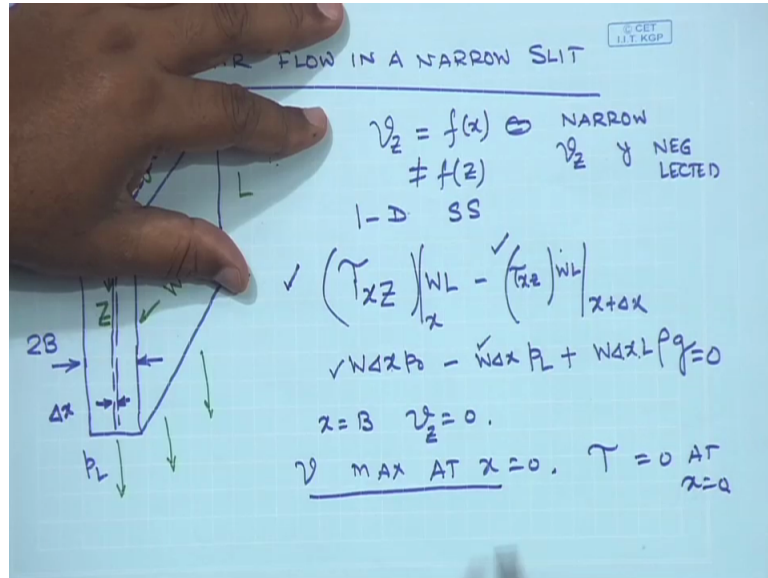 © CET
I.I.T. KGP
FLOW IN A NARROW SLIT
V_z = f(x) ⊖ NARROW
≠ f(z) V_z y NEG
LECTED
1-D SS
L
✓ (τ_xz)|_x WL - ✓(τ_xz) WL|_x+Δx
Z W
2B
✓ WΔx p_0 - ✓WΔx p_L + WΔx L ρg = 0
Δx
x = B V_z = 0.
p_L
V MAX AT x = 0. τ = 0 AT
x = 0